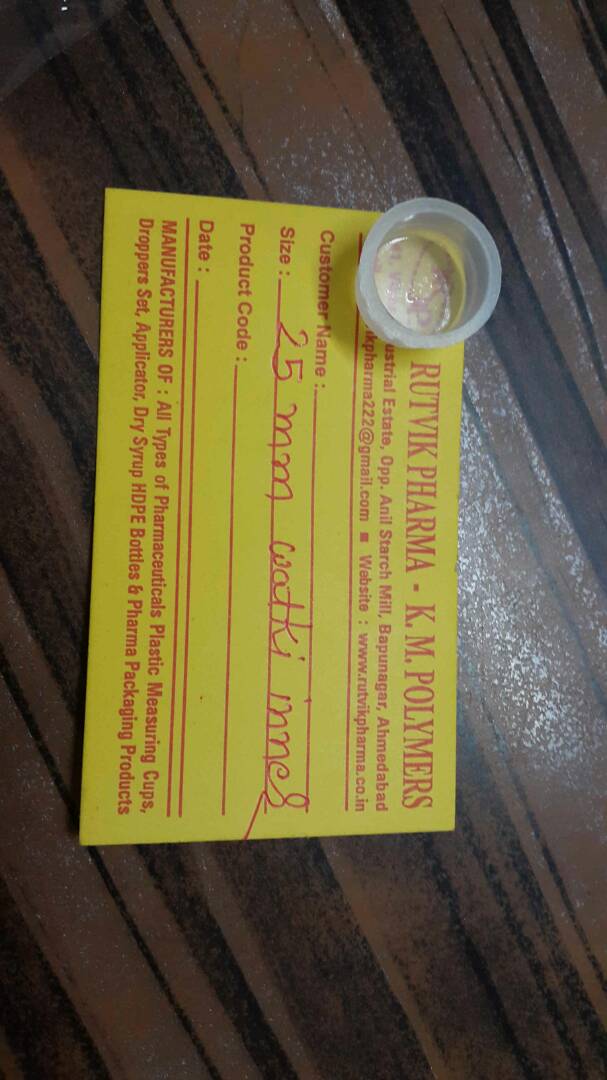 RUTVIK PHARMA - K. M. POLYMERS
ustrial Estate, Opp. Anil Starch Mill, Bapunagar, Ahmedabad
kpharma222@gmail.com ■ Website : www.rutvikpharma.co.in
Customer Name :
Size : 25 mm watki inner
Product Code :
Date :
MANUFACTURERS OF : All Types of Pharmaceuticals Plastic Measuring Cups,
Droppers Set, Applicator, Dry Syrup HDPE Bottles & Pharma Packaging Products